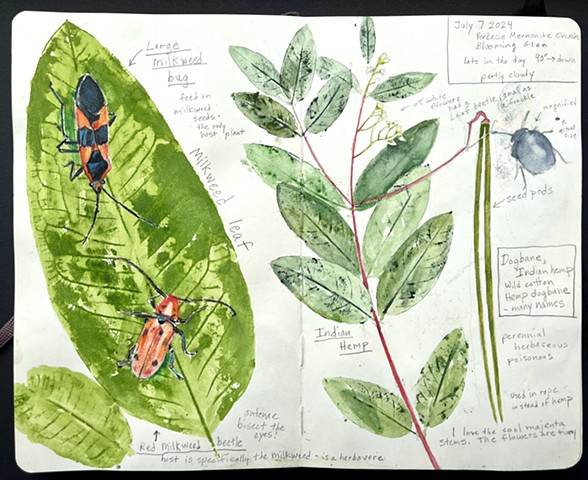 Large
milkweed
bug
feed on
milkweed
seeds -
the only
host plant
Milkweed leaf
antenae
bisect the
eyes!
Red milkweed beetle
host is specifically the milkweed - is a herbavere
July 7 2024
Mennonite Church
Blooming Glen
late in the day 90° → down
partly cloudy
off white
flowers
Leaf beetle, small as
magnified
actual
size
seed pods
Dogbane,
Indian hemp
Wild cotton
Hemp dogbane
- many names
perennial
herbaceous
poisonous
used in rope
instead of hemp
Indian
Hemp
I love the cool majenta
stems. The flowers are tiny